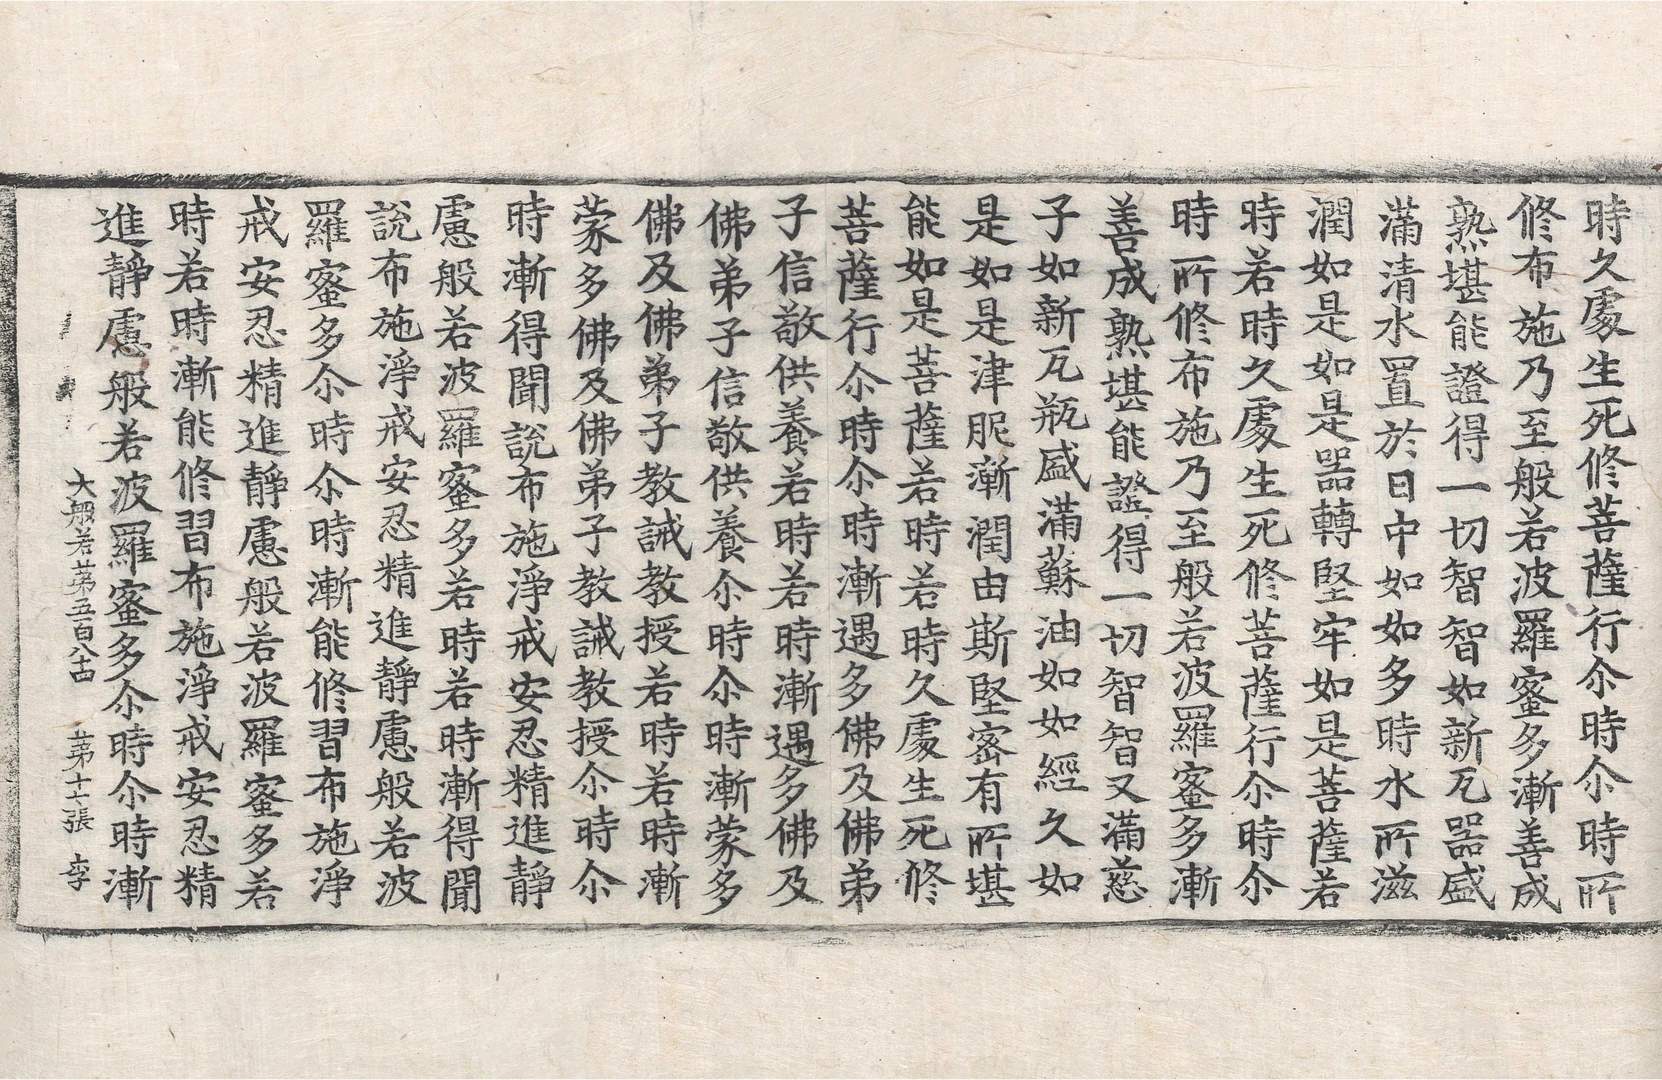 時久處生死修菩薩行尒時尒時所
修布施乃至般若波羅蜜多漸善成
熟堪能證得一切智智如新瓦器盛
滿清水置於日中如如多時水所滋
潤如是如是器轉堅牢如是菩薩若
時若時久處生死修菩薩行尒時尒
時所修布施乃至般若波羅蜜多漸
善成熟堪能證得一切智智又滿慈
子如新瓦瓶盛滿蘇油如如經久如
是如是津膩漸潤由斯堅密有所堪
能如是菩薩若時若時久處生死修
菩薩行尒時尒時漸遇多佛及佛弟
子信敬供養若時若時漸遇多佛及
佛弟子信敬供養尒時尒時漸蒙多
佛及佛弟子教誡教授若時若時漸
蒙多佛及佛弟子教誡教授尒時尒
時漸得聞說布施淨戒安忍精進靜
慮般若波羅蜜多若時若時漸得聞
說布施淨戒安忍精進靜慮般若波
羅蜜多尒時尒時漸能修習布施淨
戒安忍精進靜慮般若波羅蜜多若
時若時漸能修習布施淨戒安忍精
進靜慮般若波羅蜜多尒時尒時漸
大般若苐五百八十四 苐十七張 李